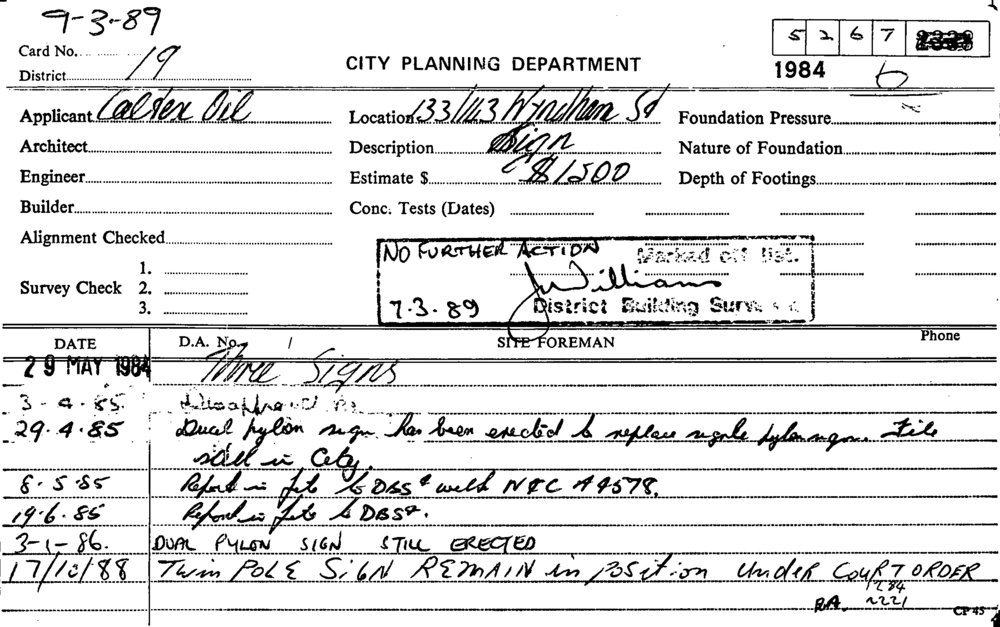 9-3-89
Card No.
19
District
CITY PLANNING DEPARTMENT
5 2 6 7
1984
6
Applicant Caltex Oil
Location 133/143 Wyndham St
Foundation Pressure
Architect
Description Sign
Nature of Foundation
Engineer
Estimate $ $1500
Depth of Footings
Builder
Conc. Tests (Dates)
Alignment Checked
Survey Check
1.
2.
3.
NO FURTHER ACTION
Marked off list.
J Williams
7.3.89
District Building Surv
DATE
D.A. No. /
SITE FOREMAN
Phone
29 MAY 1984 Three Signs
3-4-85. Disapproved
29.4.85 Dual pylon sign has been erected to replace single pylon sign. File
still in City.
8.5.85 Report in file to DBS with N&C
19.6.85 Report in file to DBS.
3-1-86. DUAL PYLON SIGN STILL ERECTED
17/10/88 Twin POLE SiGN REMAIN in position UndER COURT ORDER
1284
RA. 2221
CP 45